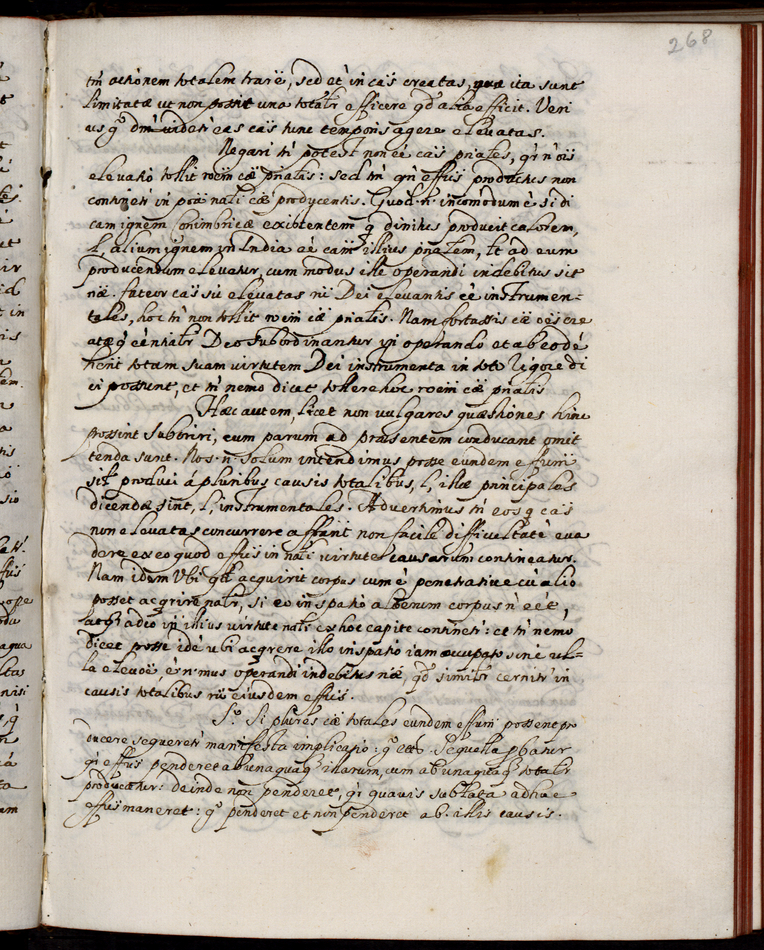 268
tm̃ actionem totalem trarẽ, sed et in cãis creatas, quæ ita sunt
limitatæ ut non possit una totalr̃ efficere qd̃ alia efficit. Veri
us gº dñr uideri eas cãis tunc temporis agere elevatas.
Negari tñ potest non eẽ cãis pñales, qı̃ n̄ oı̃s
elevatio tollit rõem cæ̃ pñalis: sed tñ qñ effus productus non
continetr̃ in poã nali cæ̃ producentis. Quod n̄. incomodum ẽ si di
cam ignem Conimbricæ existentem q̃ diuinitus producit calorem,
l, alium ignem in India eẽ cam̃ illius pñalem, lt̃ ad eum
producendum elevatur, cum modus ille operandi indebitus sit
næ̃. fateor cãis sic elevatas rı̃i Dei elevantis eẽ instrumen-
tales, hoc tñ non tollit rõem cæ̃ pñalis. Nam fortassis cæ̃ oẽs cre
atæ q̃ eẽntialr̃ Deo subordinantur in operando et ab eo dẽ
hent totam suam virtutem Dei instrumenta in toto rigore di
ci possunt, et tñ nemo dicet tollere hoc rõem cæ̃ pñalis
Hæc autem, licet non vulgares quæstiones hinc
possint suboriri, cum parum ad præsentem conducant omit
tenda sunt. Nos. n. solum intendimus posse eundem effum̃
sil̃ produci á pluribus causis totalibus, l, illæ principales
dicendæ sint, l, instrumentales. Advertimus tñ eos q̃ cãis
non elevatas concurrere affr̃ant non facile difficultatẽ eva
dere ex eo quod effus in nali virtute causarum contineatur.
Nam idem Ubi qd̃ acquirit corpus cum ẽ penetrative cũ alio
posset acqrire nalr̃, si eo in spatio alterum corpus n̄ eẽt,
atq̃ adeo in illius virtute nali ex hoc capite continetr̃: et tñ nemo
dicet posse idẽ ubi acqrere illo in spatio iam occupato sine ul-
la elevõe, ẽ n. mus operandi indebitus næ̃, qd̃ similr̃ cernitr̃ in
causis totalibus rı̃i eiusdem effus.
Sº. Si plures cæ̃ totales eundem effum̃ possent pro
ducere sequeretr̃ manifesta implicatio: gº etc. Sequella pbatur
qı̃ effus penderet ab unaquaq̃ illarum, cum ab unaquaq̃ totalr̃
producatur: deinde non penderet, qı̃ quavis sublata adhuc
effus maneret: gº penderet et non penderet ab illis causis.